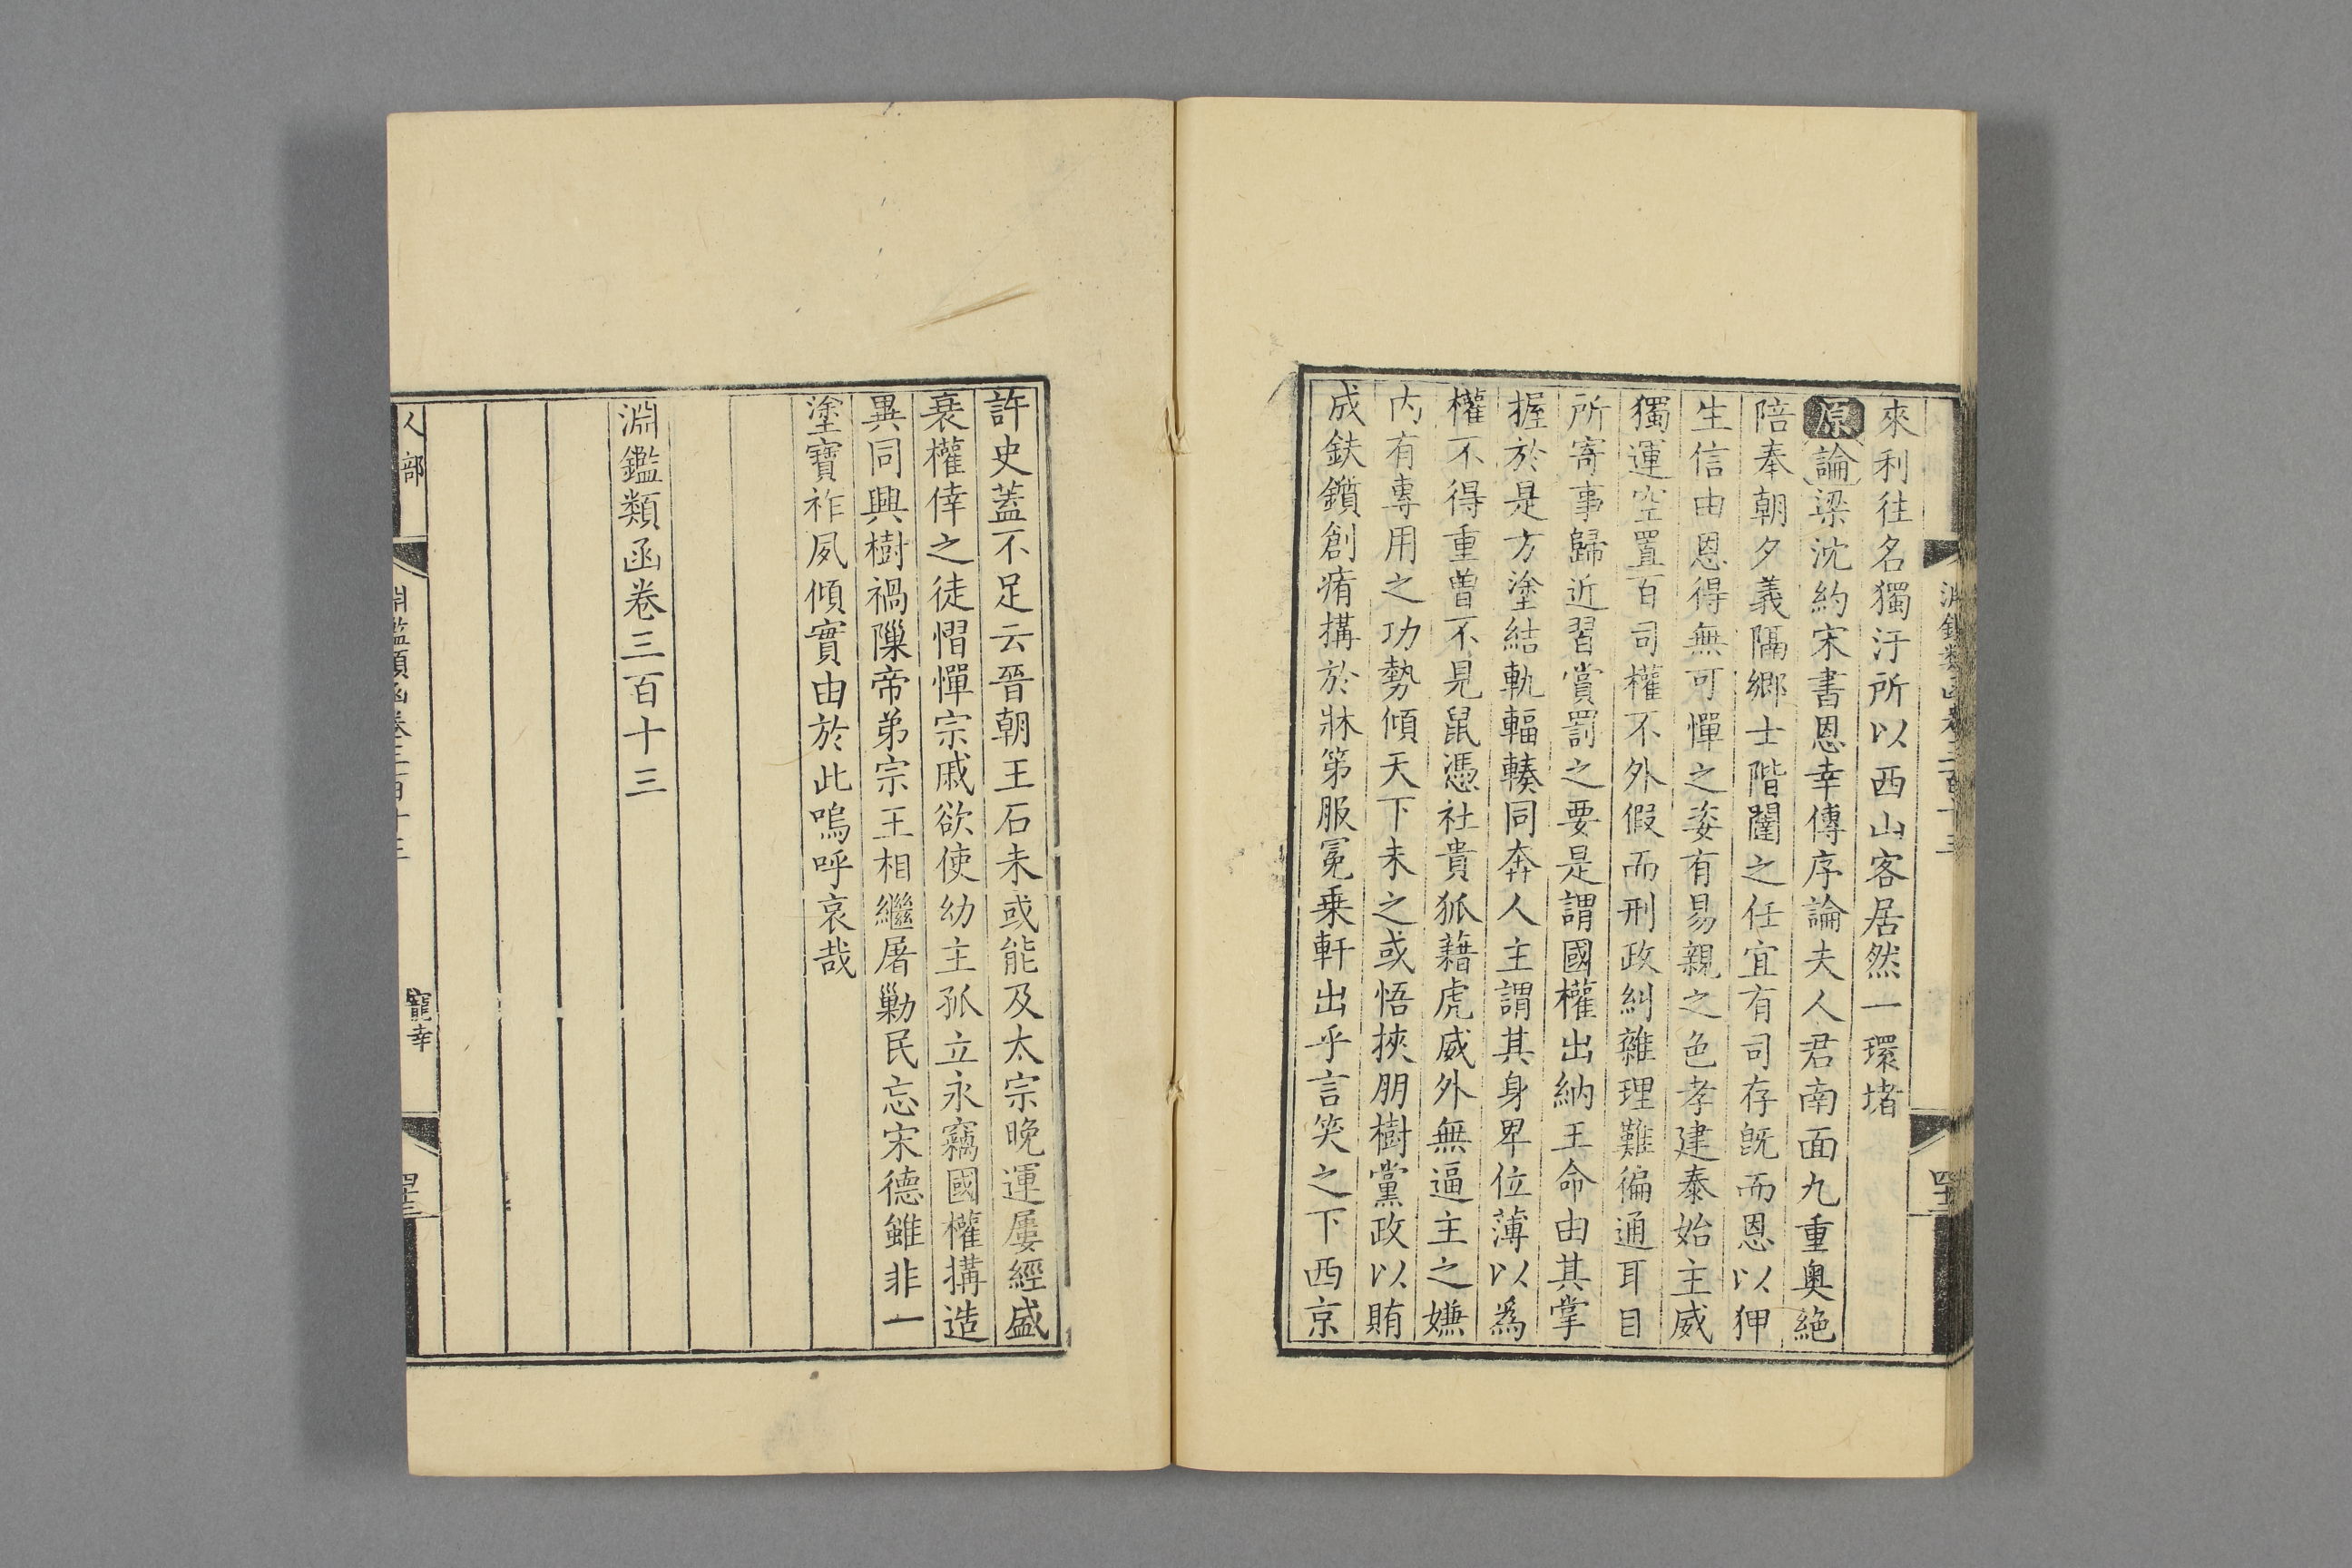 來利往名獨汙所以西山客居然一環堵
原論梁沈約宋書恩幸傳序論夫人君南面九重奧絶
陪奉朝夕義隔卿士階闥之任宜有司存旣而恩以狎
生信由恩得無可憚之姿有易親之色孝建泰始主威
獨運空置百司權不外假而刑政糾雜理難徧通耳目
所寄事歸近習賞罰之要是謂國權出納王命由其掌
握於是方塗結軌輻輳同奔人主謂其身卑位薄以爲
權不得重曾不見鼠憑社貴狐藉虎威外無逼主之嫌
內有專用之功勢傾天下未之或悟挾朋樹黨政以賄
成鈇鑕創痏搆於牀第服冕乗軒出乎言笑之下西京
許史蓋不足云晉朝王石未或能及太宗晚運屢經盛
衰權倖之徒慴憚宗戚欲使幼主孤立永竊國權搆造
異同興樹禍隟帝弟宗王相繼屠勦民忘宋德雖非一
塗寶祚夙傾實由於此嗚呼哀哉
淵鑑類函卷三百十三
人部
淵鑑類函卷三百十三
寵幸